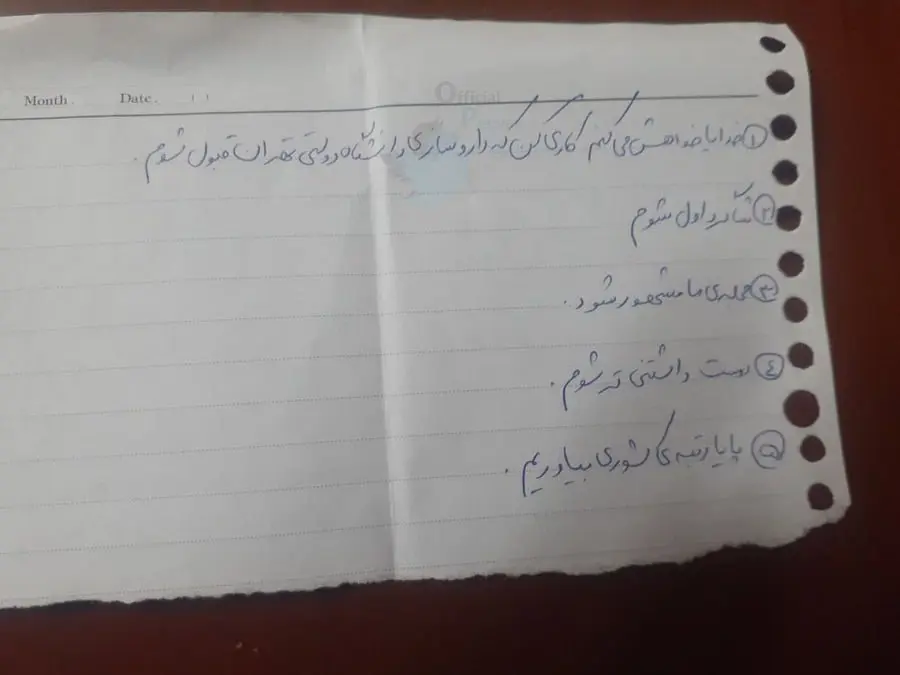 Month. Date. ا ا
Official
① خدایا خواهش می‌کنم کاری کن که داروسازی دانشگاه دولتی تهران قبول شوم.
② شاگرد اول شوم
③ مجله‌ی ما مشهور شود.
④ دوست داشتنی تر شوم.
⑤ پایا رتبه‌ی کشوری بیاوریم.